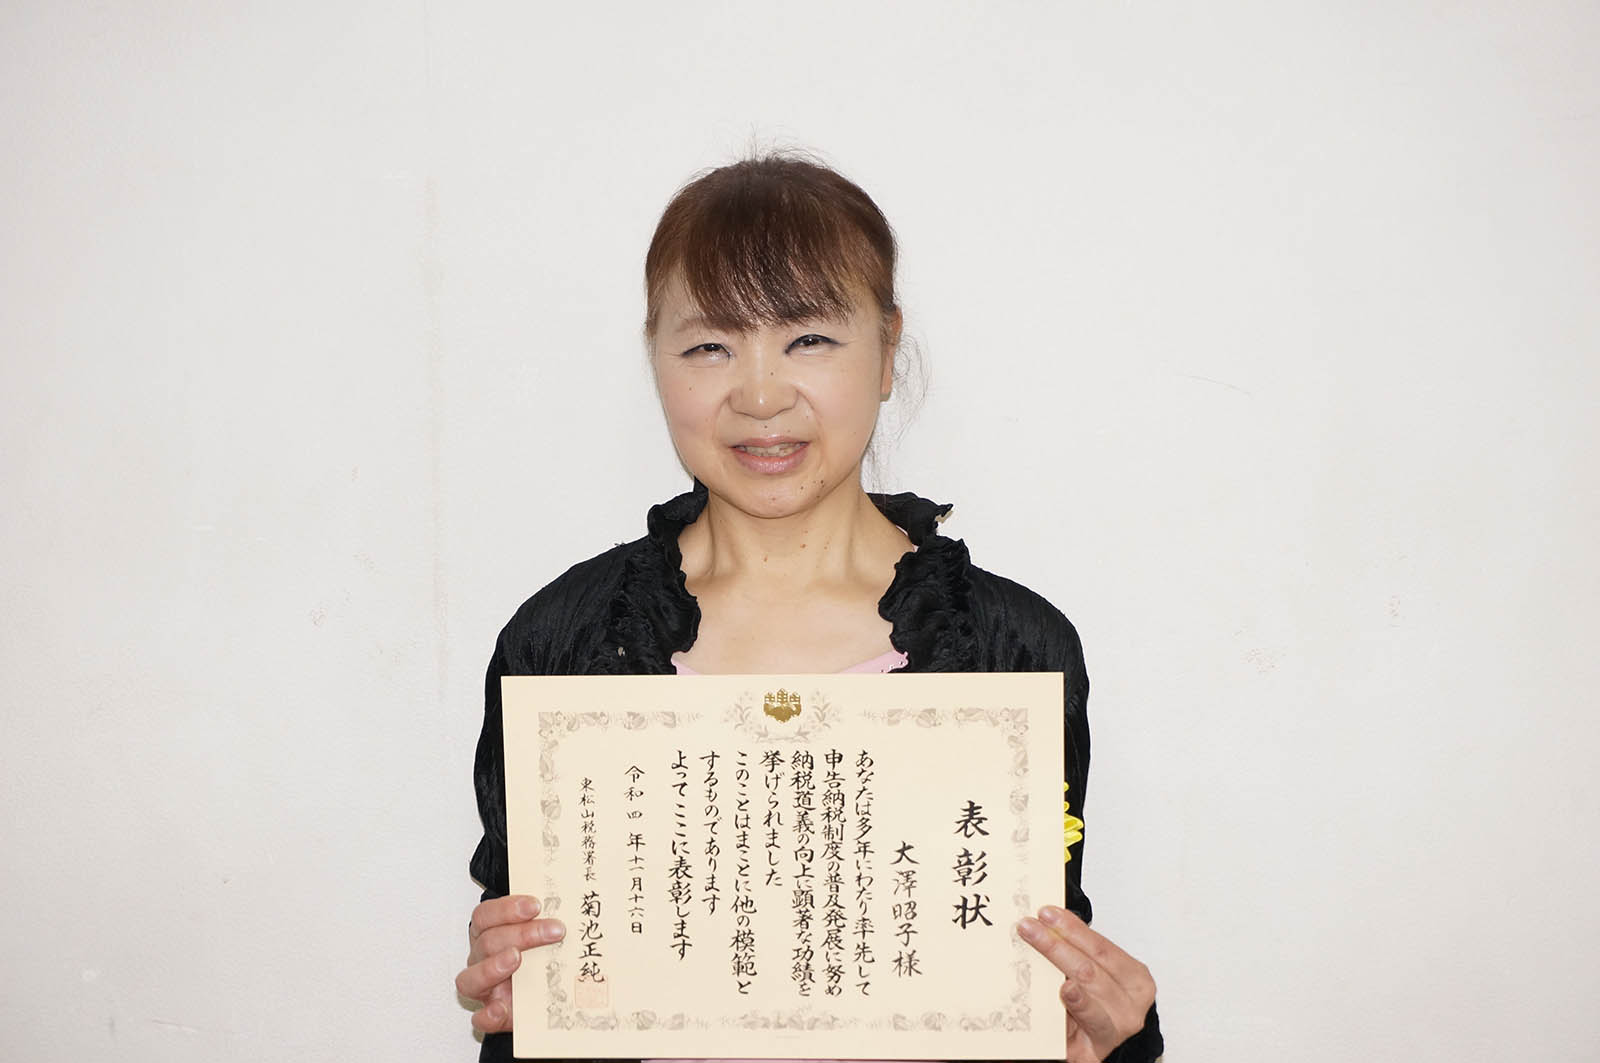 表彰状
大澤昭子様
あなたは多年にわたり率先して
申告納税制度の普及発展に努め
納税道義の向上に顕著な功績を
挙げられました
このことはまことに他の模範と
するものであります
よってここに表彰します
令和四年十一月十六日
東松山税務署長 菊池正純